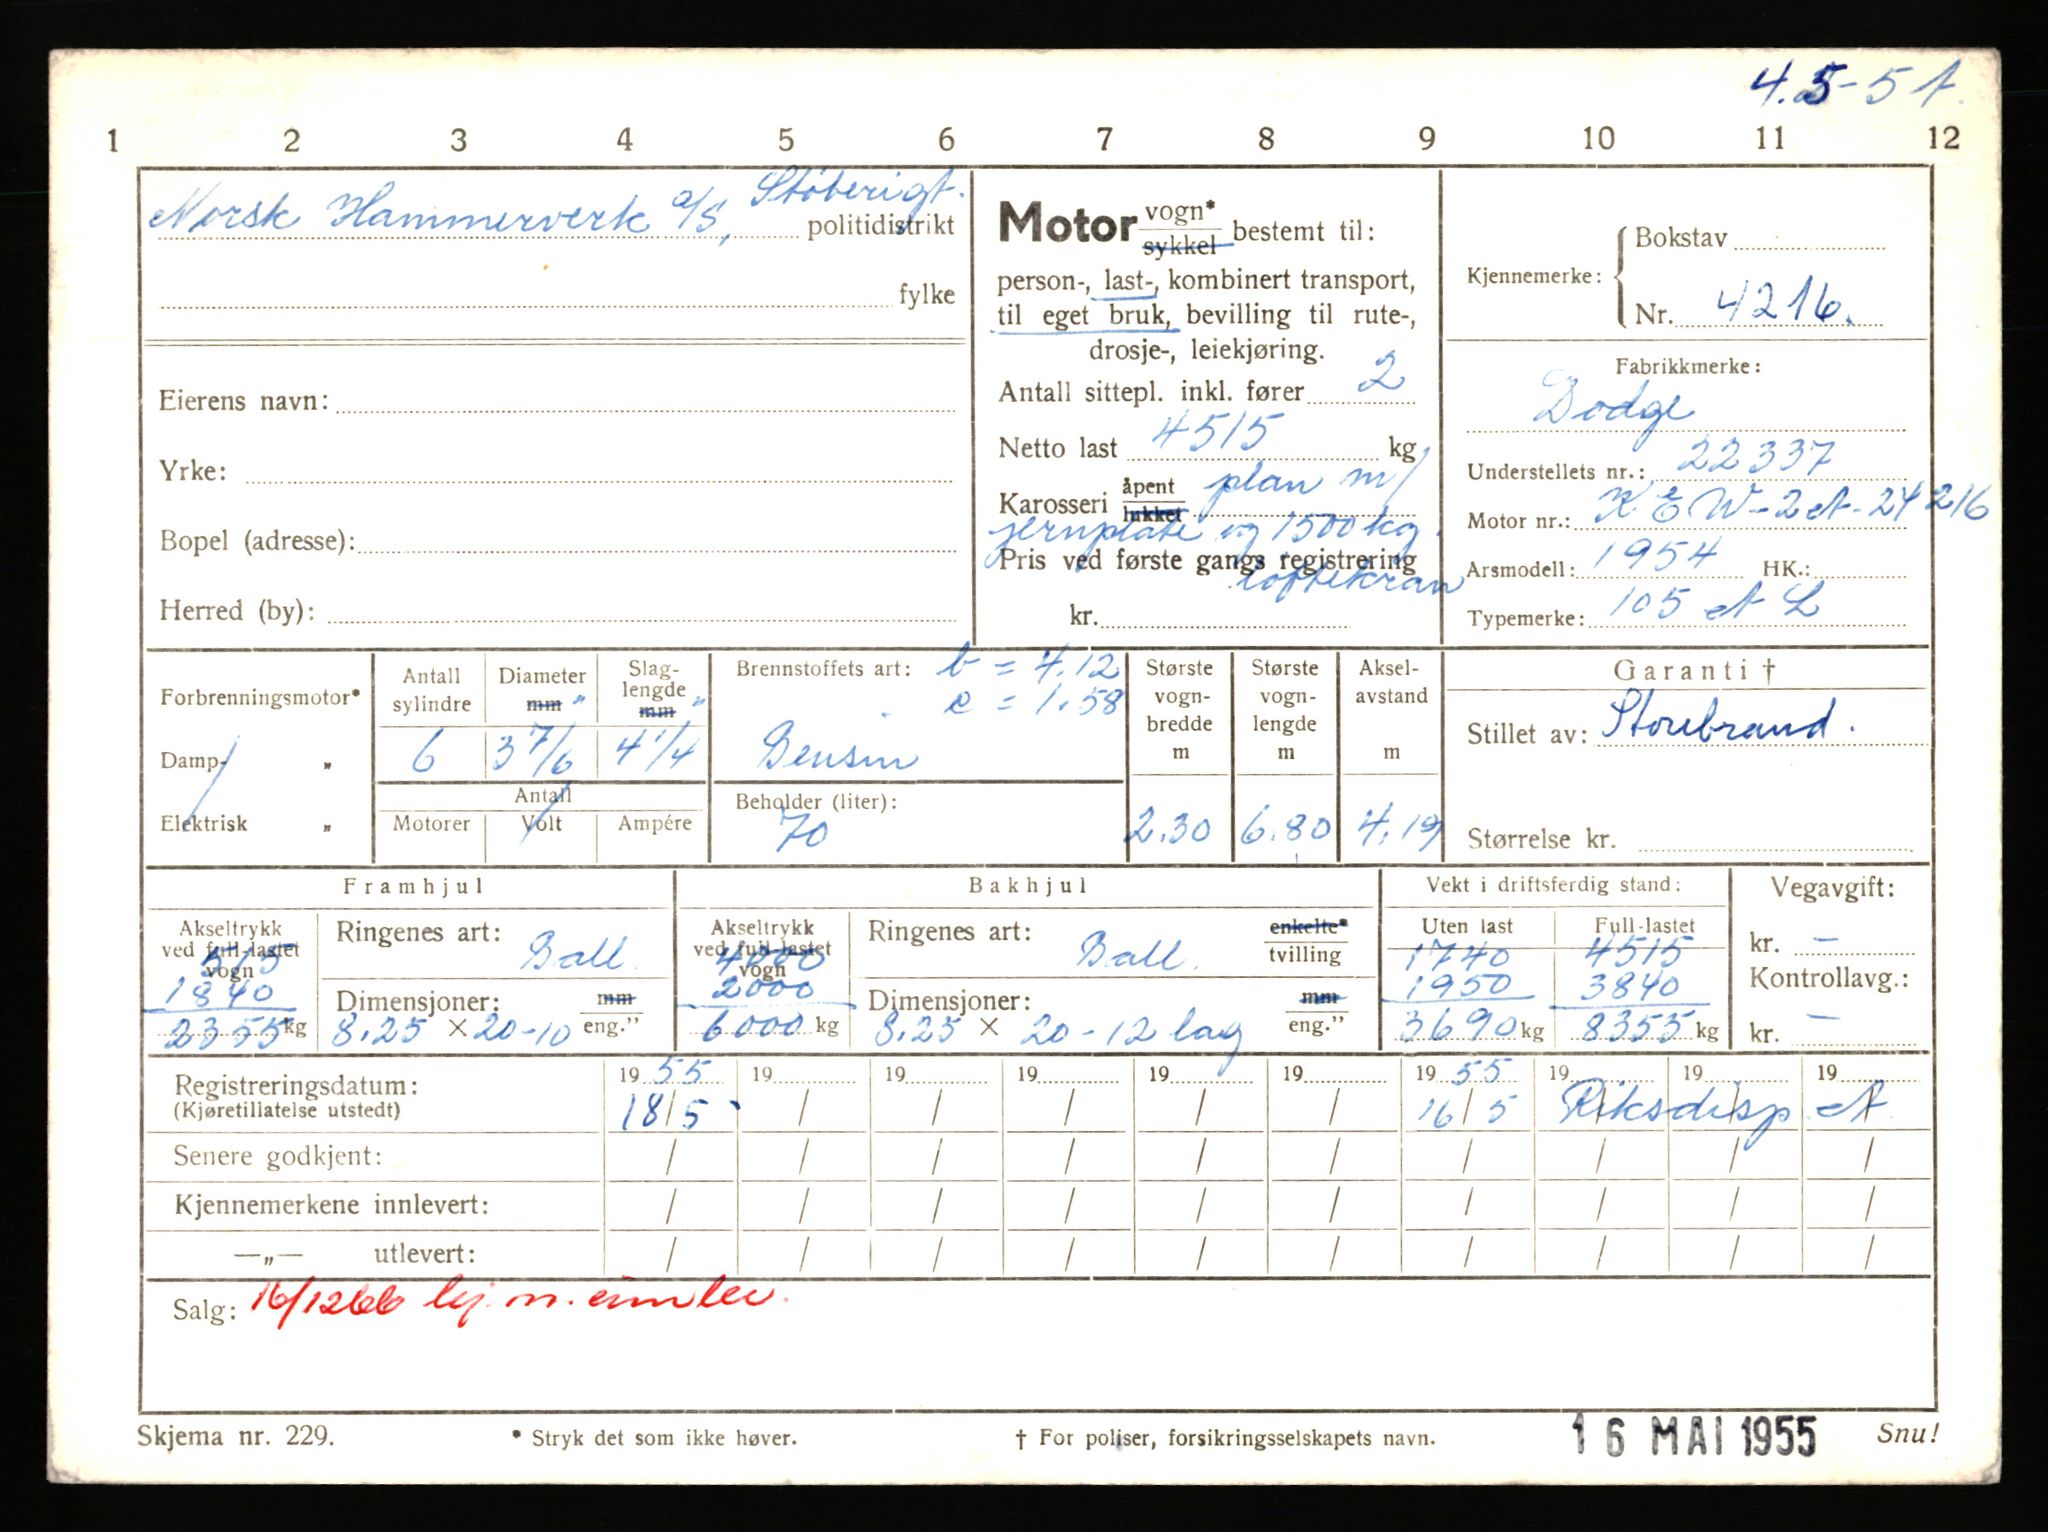 4.5-51
1 2 3 4 5 6 7 8 9 10 11 12
Norsk Hammerverk a/s, Støberigt.
politidistrikt
fylke
Eierens navn:
Yrke:
Bopel (adresse):
Herred (by):
Motor vogn* sykkel bestemt til:
person-, last-, kombinert transport,
til eget bruk, bevilling til rute-,
drosje-, leiekjøring.
Antall sittepl. inkl. fører 2
Netto last 4515 kg
Karosseri åpent lukket plan m/
jernplate og 1500 kg.
Pris ved første gangs registrering
loftekran
kr.
Kjennemerke: Bokstav
Nr. 4216.
Fabrikkmerke:
Dodge
Understellets nr.: 22337
Motor nr.: KEW-2A-24216
Arsmodell: 1954 HK.:
Typemerke: 105 A L
Forbrenningsmotor*
Damp- „
Elektrisk „
Antall sylindre
6
Diameter mm "
3 7/6
Slag-lengde mm "
4 1/4
Antall
Motorer Volt Ampére
Brennstoffets art: b = 4.12
c = 1.58
Bensin
Beholder (liter):
70
Største vogn-bredde m
2.30
Største vogn-lengde m
6.80
Aksel-avstand m
4.19
Garanti †
Stillet av: Storebrand.
Størrelse kr.
Framhjul
Akseltrykk ved full-lastet vogn
515
1840
2355 kg
Ringenes art: Ball.
Dimensjoner: mm eng."
8.25 × 20-10
Bakhjul
Akseltrykk ved full-lastet vogn
4000
2000
6000 kg
Ringenes art: Ball. enkelte* tvilling
Dimensjoner: mm eng."
8.25 × 20-12 lag
Vekt i driftsferdig stand:
Uten last Full-lastet
1740 4515
1950 3840
3690 kg 8355 kg
Vegavgift:
kr. —
Kontrollavg.:
kr. —
Registreringsdatum: 19 55 19 19 19 19 19 19 55 19 19 19
(Kjøretillatelse utstedt) 18/5 / / / / / 16/5 Riksdisp. A
Senere godkjent: / / / / / / / / / /
Kjennemerkene innlevert: / / / / / / / / / /
—„— utlevert: / / / / / / / / / /
Salg: 16/1266 kj. m. innlev.
Skjema nr. 229. * Stryk det som ikke høver. † For poliser, forsikringsselskapets navn. 16 MAI 1955 Snu!